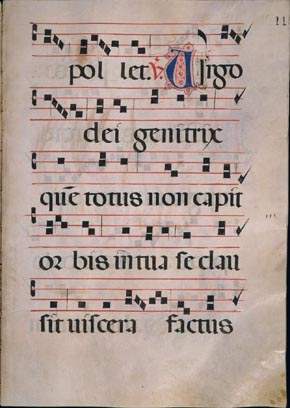 pol let. ℟. Uirgo
dei genitrix
quē totus non capit
or bis in tua se clau
sit uiscera factus